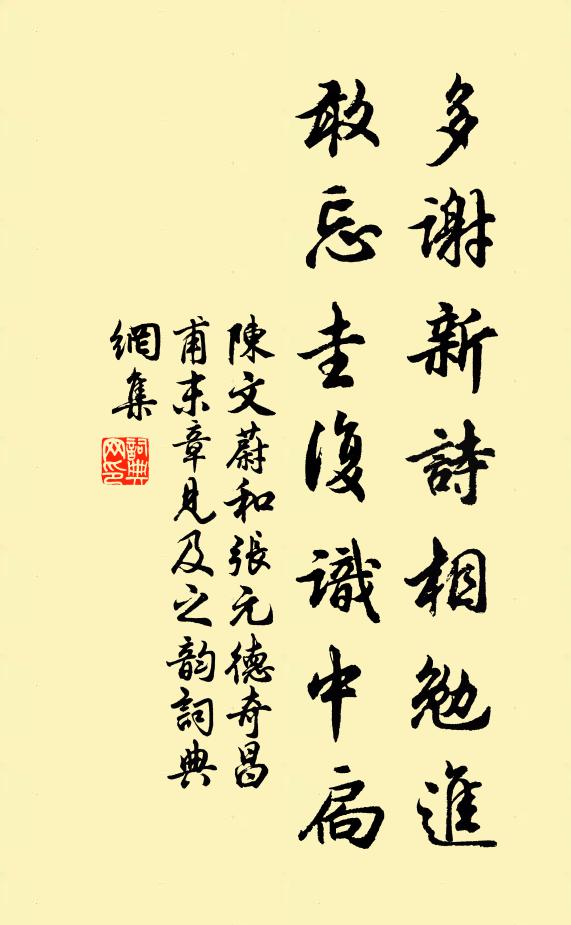 多謝新詩相勉進
敢忘圭復識中扃
陳文蔚和張元德奇昌
甫末章見及之韵詞典
網集
詞典
网印